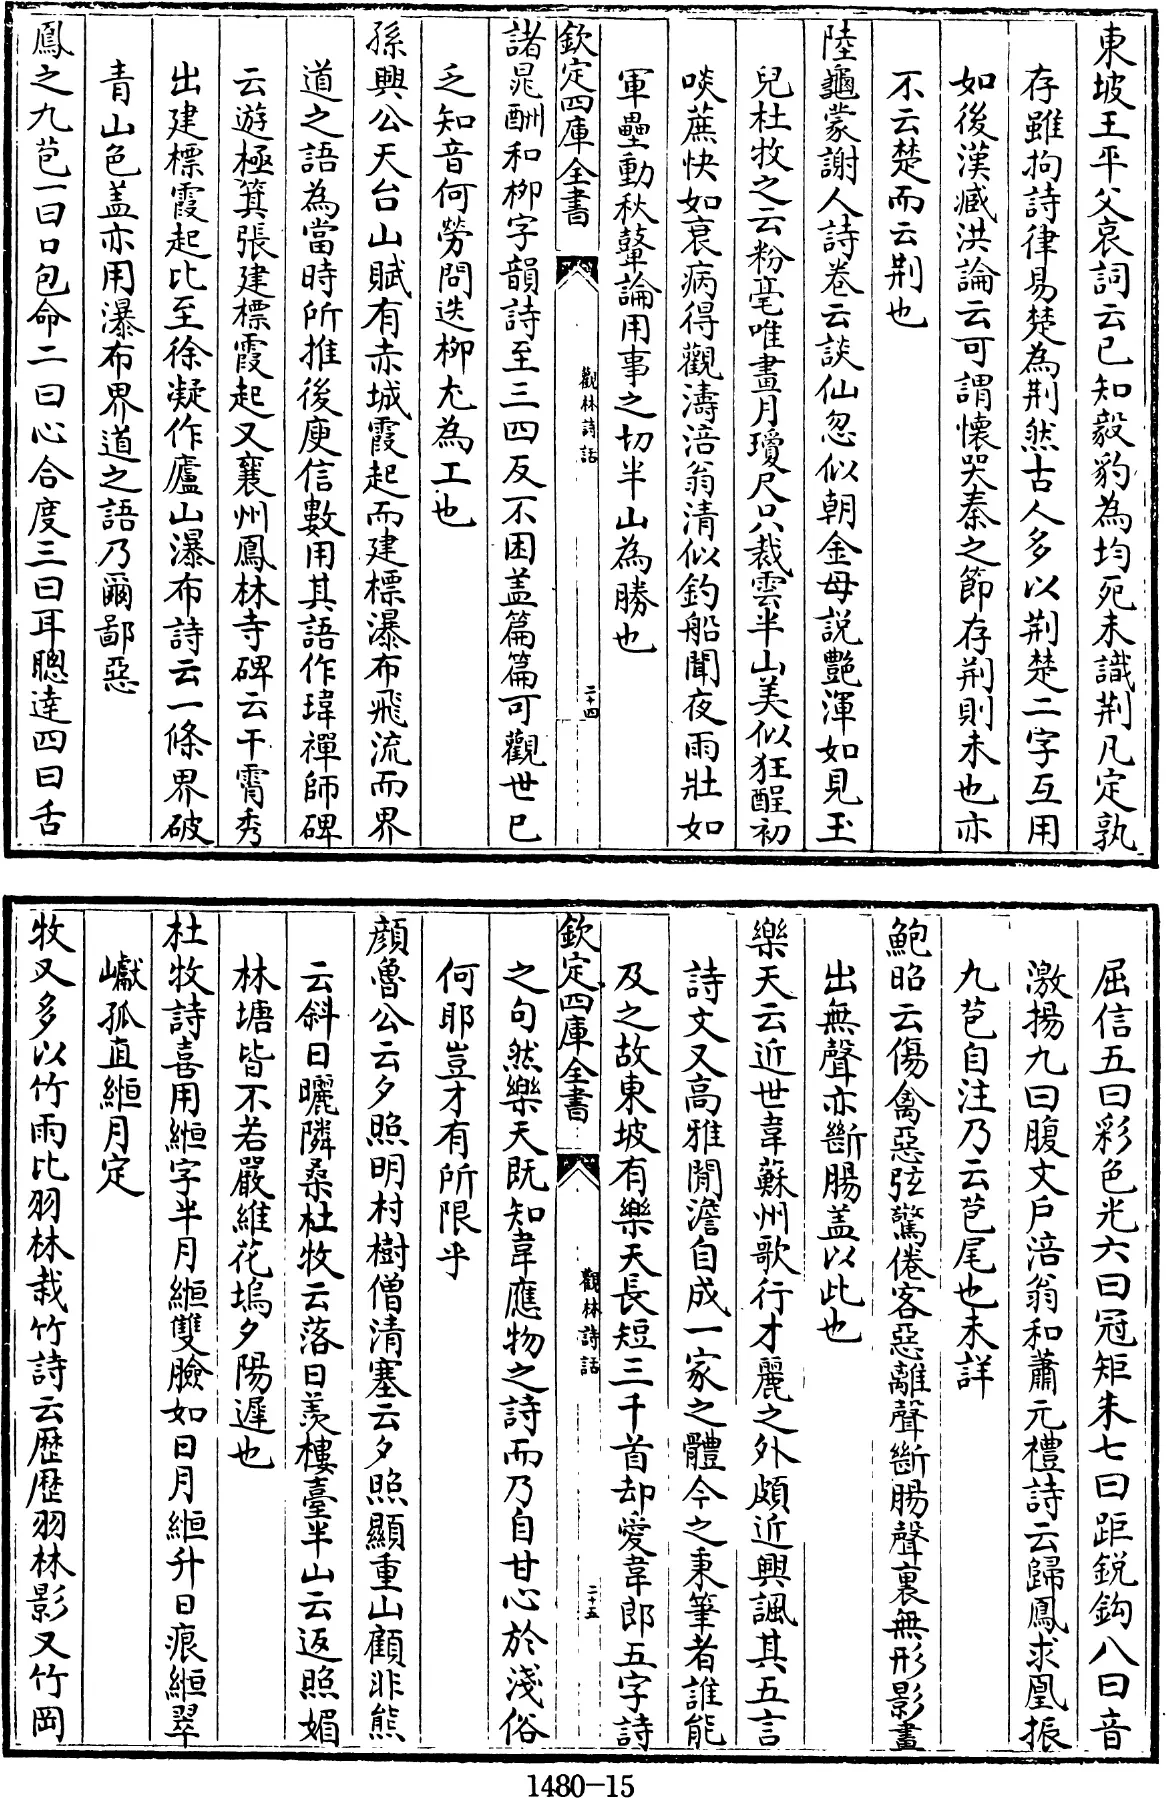 東坡王平父哀詞云已知毅豹為均死未識荆凡定孰
存雖拘詩律易楚為荆然古人多以荆楚二字互用
如後漢臧洪論云可謂懷哭秦之節存荆則未也亦
不云楚而云荆也
陸龜蒙謝人詩卷云談仙忽似朝金母說艷渾如見玉
兒杜牧之云粉毫唯畫月瓊尺只裁雲半山美似狂酲初
啖蔗快如衰病得觀濤涪翁清似釣船聞夜雨壯如
軍壘動秋鼙論用事之切半山為勝也
欽定四庫全書 觀林詩話 二十四
諸晁酬和栁字韻詩至三四反不困盖篇篇可觀世已
乏知音何勞問迭栁尤為工也
孫興公天台山賦有赤城霞起而建標瀑布飛流而界
道之語為當時所推後庾信數用其語作瑋禪師碑
云遊極箕張建標霞起又襄州鳳林寺碑云干霄秀
出建標霞起比至徐凝作廬山瀑布詩云一條界破
青山色盖亦用瀑布界道之語乃爾鄙惡
鳳之九苞一曰口包命二曰心合度三曰耳聰達四曰舌
屈信五曰彩色光六曰冠矩朱七曰距鋭鈎八曰音
激揚九曰腹文戶涪翁和蕭元禮詩云歸鳳求凰振
九苞自注乃云苞尾也未詳
鮑昭云傷禽惡弦驚倦客惡離聲斷腸聲裏無形影畫
出無聲亦斷腸盖以此也
樂天云近世韋蘇州歌行才麗之外頗近興諷其五言
詩文又高雅閒澹自成一家之體今之秉筆者誰能
及之故東坡有樂天長短三千首却愛韋郎五字詩
欽定四庫全書 觀林詩話 二十五
之句然樂天既知韋應物之詩而乃自甘心於淺俗
何耶豈才有所限乎
顏魯公云夕照明村樹僧清塞云夕照顯重山顧非熊
云斜日曬隣桑杜牧云落日羨樓臺半山云返照媚
林塘皆不若嚴維花塢夕陽遲也
杜牧詩喜用絙字半月絙雙臉如日月絙升日痕絙翠
巘孤直絙月定
牧又多以竹雨比羽林栽竹詩云歷歷羽林影又竹岡
1480-15